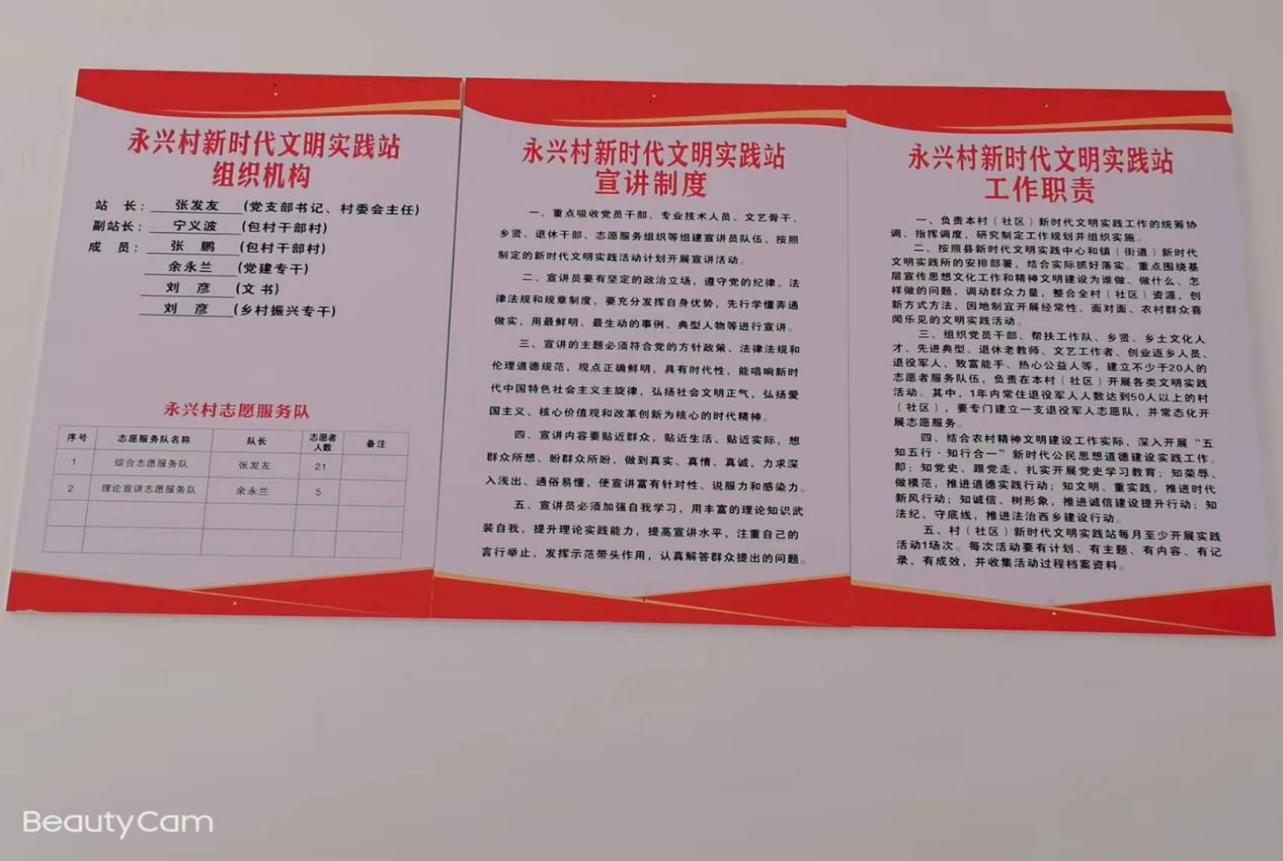 永兴村新时代文明实践站
组织机构
站　长：张发友（党支部书记、村委会主任）
副站长：宁义波（包村干部村）
成　员：张　鹏（包村干部村）
余永兰（党建专干）
刘　彦（文书）
刘　彦（乡村振兴专干）
永兴村志愿服务队
序号 志愿服务队名称 队长 志愿者人数 备注
1 综合志愿服务队 张发友 21
2 理论宣讲志愿服务队 余永兰 5
永兴村新时代文明实践站
宣讲制度
一、重点吸收党员干部、专业技术人员、文艺骨干、
乡贤、退休干部、志愿服务组织等组建宣讲员队伍，按照
制定的新时代文明实践活动计划开展宣讲活动。
二、宣讲员要有坚定的政治立场，遵守党的纪律、法
律法规和规章制度，要充分发挥自身优势，先行学懂弄通
做实，用最鲜明、最生动的事例、典型人物等进行宣讲。
三、宣讲的主题必须符合党的方针政策、法律法规和
伦理道德规范，观点正确鲜明，具有时代性，能唱响新时
代中国特色社会主义主旋律，弘扬社会文明正气，弘扬爱
国主义、核心价值观和改革创新为核心的时代精神。
四、宣讲内容要贴近群众，贴近生活、贴近实际，想
群众所想、盼群众所盼，做到真实、真情、真诚，力求深
入浅出、通俗易懂，使宣讲富有针对性、说服力和感染力。
五、宣讲员必须加强自我学习，用丰富的理论知识武
装自我，提升理论实践能力，提高宣讲水平，注重自己的
言行举止，发挥示范带头作用，认真解答群众提出的问题。
永兴村新时代文明实践站
工作职责
一、负责本村（社区）新时代文明实践工作的统筹协
调、指挥调度，研究制定工作规划并组织实施。
二、按照县新时代文明实践中心和镇（街道）新时代
文明实践所的安排部署，结合实际抓好落实。重点围绕基
层宣传思想文化工作和精神文明建设为谁做、做什么、怎
样做的问题，调动群众力量，整合全村（社区）资源，创
新方式方法，因地制宜开展经常性、面对面、农村群众喜
闻乐见的文明实践活动。
三、组织党员干部、帮扶工作队、乡贤、乡土文化人
才、先进典型、退休老教师、文艺工作者、创业返乡人员、
退役军人、致富能手、热心公益人等，建立不少于20人的
志愿者服务队伍，负责在本村（社区）开展各类文明实践
活动。其中，1年内常住退役军人人数达到50人以上的村
（社区），要专门建立一支退役军人志愿队，并常态化开
展志愿服务。
四、结合农村精神文明建设工作实际，深入开展“五
知五行·知行合一”新时代公民思想道德建设实践工作。
即：知党史、跟党走，扎实开展党史学习教育；知荣辱、
做模范，推进道德实践行动；知文明、重实践，推进时代
新风行动；知诚信、树形象，推进诚信建设提升行动；知
法纪、守底线，推进法治西乡建设行动。
五、村（社区）新时代文明实践站每月至少开展实践
活动1场次。每次活动要有计划、有主题、有内容、有记
录，有成效，并收集活动过程档案资料。
BeautyCam